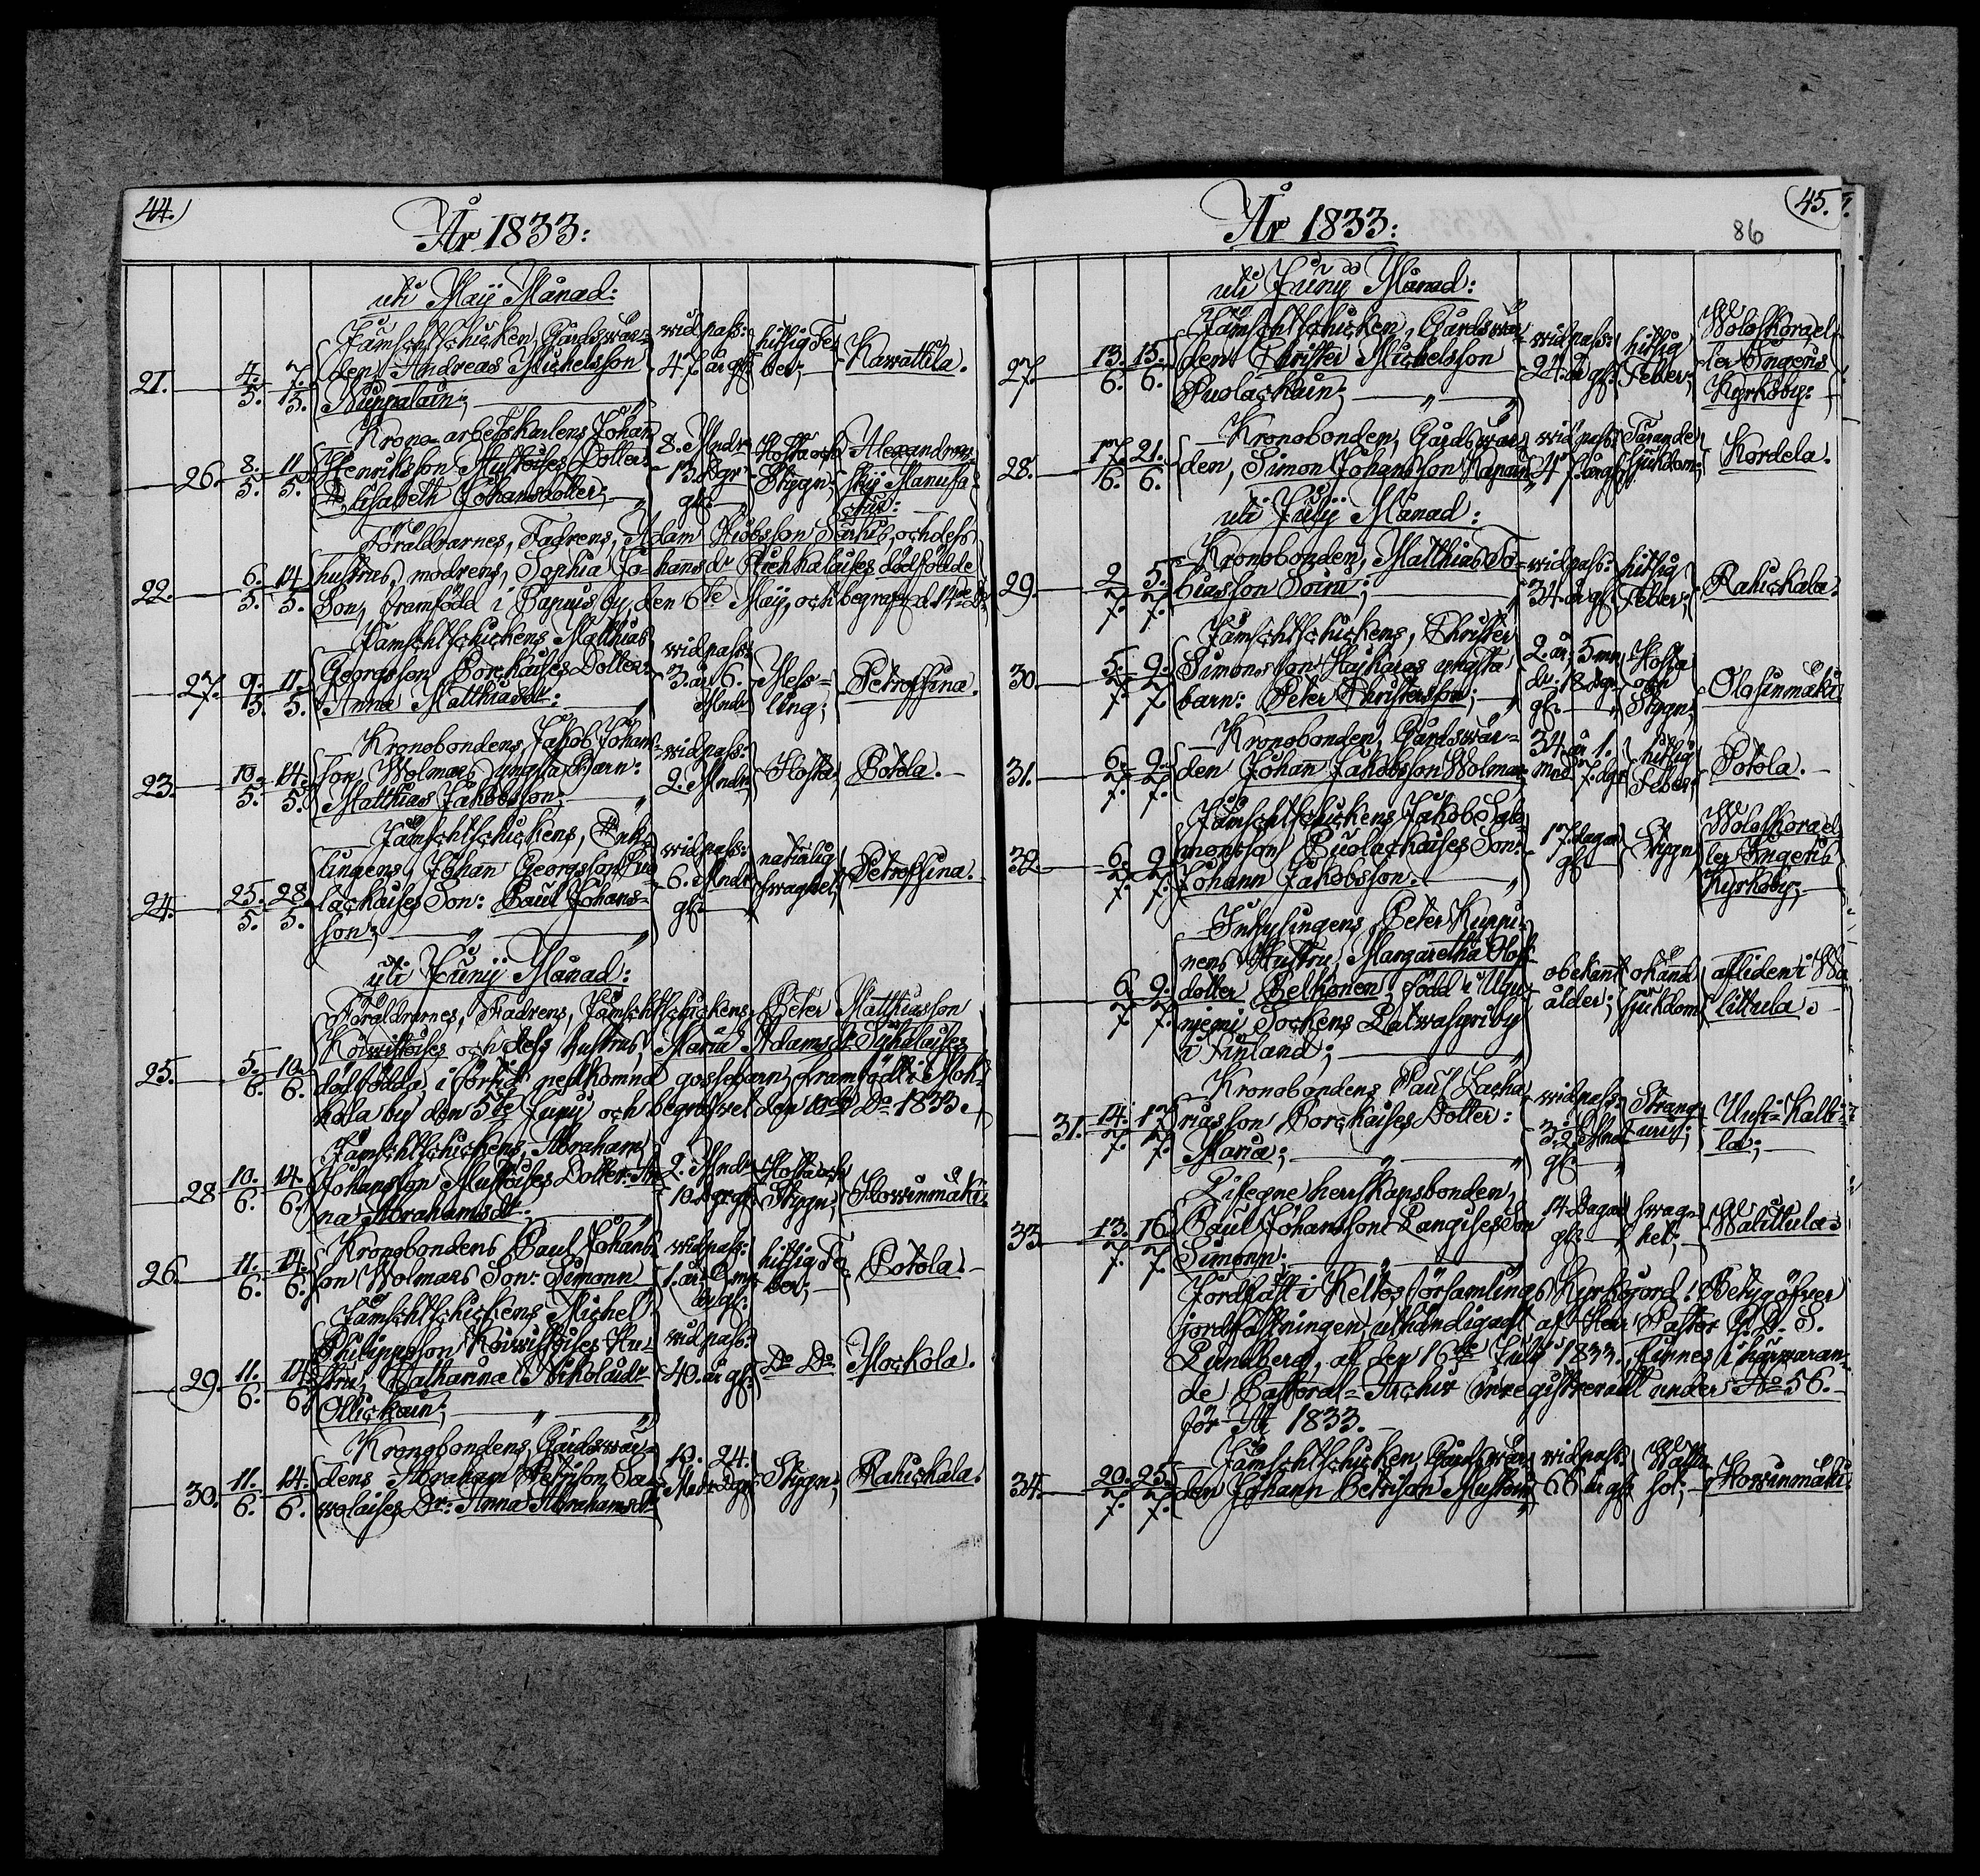 44.
År 1833:
uti Maij Månad:
21. 4./5. 7./5. Jämschtschicken, Gårdswär-
den Andreas Michelsson
Nuppalain;
widpass:
47. år gl:
hitsig Fe-
ber;
Kawattila.
26. 8./5. 11./5. Krono-arbetskarlens Johan
Henriksson Mustoises Dotter:
Elisabeth Johansdotter;
8. Mndr
13. Dgr
gl:
Hosta och
Stygn;
Alexandrow-
skij Manufa-
ctur:
22. 6./5. 14./5. Föräldrarnes, Fadrens, Adam Hiobsson Särkis, och dess
hustrus, modrens, Sophia Johansdr Kiehkalaises dödfödde
Son, framfödd i Papuis by, den 6te Maij, och begrafd d. 14de Do
27. 9./5. 11./5. Jämschtschickens Matthias
Georgsson Porckaises Dotter:
Anna Matthiasdr:
widpass:
3. år 6.
Mndr
Mess-
ling;
Petroffina.
23. 10./5. 14./5. Kronobondens Jakob Johans-
son Wolmars yngsta Barn:
Matthias Jakobsson;
widpass:
2. Mndr
Hosta;
Potola.
24. 25./5. 28./5. Jämschtschickens, Enk-
lingens, Johan Georgsson Puo-
lackaises Son: Paul Johans-
son;
widpass:
6. Mndr
gl:
naturlig
swaghet;
Petroffina.
uti Junij Månad:
25. 5./6. 10./6. Föräldrarnes, Fadrens, Jämschtschickens, Peter Matthiasson
Koiwistoises och dess hustrus, Maria Adamsdr
dödfödda, i förtid nedkomna gossebarn, framfödt i Moh-
kola by den 5te Junij och begrafwet den 10de Do 1833.
28. 10./6. 14./6. Jämschtschickens, Abraham
Johansson Mustoises Dotter: An-
na Abrahamsdr:
2. Mndr
10. Dgr gl:
Hosta och
Stygn;
Howinmäki.
26. 11./6. 14./6. Kronobondens Paul Johans-
son Wolmars Son: Simonn
widpass:
1. år
gl:
hitsig Fe-
ber;
Potola.
29. 11./6. 14./6. Jämschtschickens Michel
Philippsson Koiwistoises Hu-
stru, Catharina Nikolaidr
Ollickain;
widpass:
40. år gl:
Do Do
Mockola.
30. 11./6. 14./6. Kronobondens, Gårdswär-
dens Abraham Petrison Sa-
wolaises Dr: Anna Abrahamsdr
10. 24.
Mndr Dgr
Stygn;
Rahickala.
45.
86
År 1833:
uti Junij Månad:
27. 13./6. 15./6. Jämschtschicken, Gårdswär-
den Christer Michelsson
Puolackain;
widpass:
24. år gl:
hitsig
Feber;
Woloskorael-
ler Ingeris
Kyrkoby:
28. 17./6. 21./6. Kronobonden, Gårdswär-
den, Simon Johansson Kapain
widpass:
47. år gl:
Tärande
sjukdom;
Kordela.
uti Julij Månad:
29. 2./7. 5./7. Kronobonden, Matthias To-
biasson Soini;
widpass:
34. år gl:
hitsig
Feber;
Rahickala.
30. 5./7. 9./7. Jämschtschickens, Christer
Simonsson Haikaras yngsta
barn: Peter Christersson;
2. år, 5 mn
dr: 18 dgr
gl:
Hosta
och
Stygn;
Olosinmäki
31. 6./7. 9./7. Kronobonden, Gårdswär-
den Johan Jakobsson Wolmar
34. år 1.
Mnd 7. dgr
hitsig
Feber;
Potola.
32. 6./7. 9./7. Jämschtschickens Jakob Salo-
monsson Puolackaises Son:
Johann Jakobsson:
17. dagar
gl:
Stygn
Woloskorael-
ler Ingeris
Kyrkoby;
6./7. 9./7. Inhysingens Peter Kuppi-
nens Hustru, Margaretha Olofs-
dotter Pelkonen, född i
Sockens by
i Finland;
obekant
ålder;
okänd
sjukdom
afliden i Wa-
littula.
31. 14./7. 17./7. Kronobondens Paul Zacha-
riasson Porckaises Dotter:
Maria;
widpass:
3½ Mnd
gl:
Strang-
urie;
Uusi-Kalbi-
la;
33. 13./7. 16./7. Lifegne herrskapsbonden,
Paul Johansson Pangises Son
Simonn;
14. Dagar
gl:
swag-
het;
Walittula.
Jordfäst i Keltos församlings Kyrkojord. Betyg öfwer
jordfästningen, uthändigadt af Herr Pastor
Lundberg, af den 16de Julij 1833. Finnes i härwaran-
de Pastoral-Archiv inregistreradt under No 56.
för År 1833.
34. 20./7. 25./7. Jämschtschicken, Gårdswär-
den Johann Petrison Mustoin
widpass:
66 år gl:
Watte-
sot;
Howinmäki.